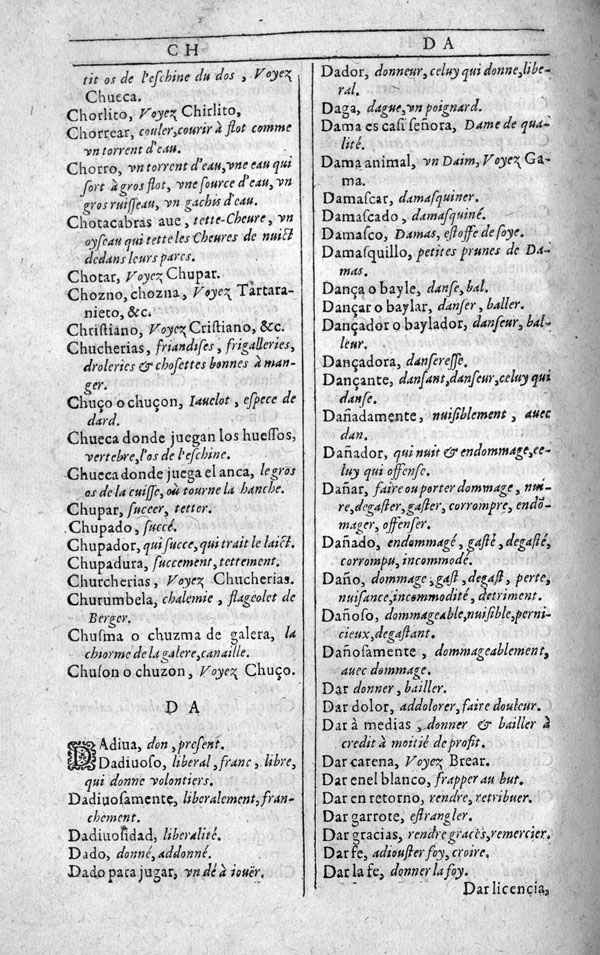 CH
tit os de l'eschine du dos, Voyez
Chueca.
Chorlito, Voyez Chirlito,
Chorrear, couler, courir à flot comme
vn torrent d'eau.
Chorro, vn torrent d'eau, vne eau qui
sort à gros flot, vne source d'eau, vn
gros ruisseau, vn gachis d'eau.
Chotacabras aue, tette-Cheure, vn
oyseau qui tette les Cheures de nuict
dedans leurs parcs.
Chotar, Voyez Chupar.
Chozno, chozna, Voyez Tartara-
nieto, &c.
Christiano, Voyez Cristiano, &c.
Chucherias, friandises, frigalleries,
droleries & chosettes bonnes à man-
ger.
Chuço o chuçon, Iauelot, espece de
dard.
Chueca donde juegan los huessos,
vertebre, l'os de l'eschine.
Chueca donde juega el anca, le gros
os de la cuisse, où tourne la hanche.
Chupar, succer, tetter.
Chupado, succé.
Chupador, qui succe, qui trait le laict.
Chupadura, succement, tettement.
Churcherias, Voyez Chucherias.
Churumbela, chalemie, flageolet de
Berger.
Chusma o chuzma de galera, la
chiorme de la galere, canaille.
Chuson o chuzon, Voyez Chuço.
DA
DAdiua, don, present.
Dadiuoso, liberal, franc, libre,
qui donne volontiers.
Dadiuosamente, liberalement, fran-
chement.
Dadiuosidad, liberalité.
Dado, donné, addonné.
Dado para jugar, vn dé à iouër.
DA
Dador, donneur, celuy qui donne, libe-
ral.
Daga, dague, vn poignard.
Dama es casi señora, Dame de qua-
lité.
Dama animal, vn Daim, Voyez Ga-
ma.
Damascar, damasquiner.
Damascado, damasquiné.
Damasco, Damas, estoffe de soye.
Damasquillo, petites prunes de Da-
mas.
Dança o bayle, danse, bal.
Dançar o baylar, danser, baller.
Dançador o baylador, danseur, bal-
leur.
Dançadora, danseresse.
Dançante, dansant, danseur, celuy qui
danse.
Dañadamente, nuisiblement, auec
dan.
Dañador, qui nuit & endommage, ce-
luy qui offense.
Dañar, faire ou porter dommage, nui-
re, degaster, gaster, corrompre, endō-
mager, offenser.
Dañado, endommagé, gasté, degasté,
corrompu, incommodé.
Daño, dommage, gast, degast, perte,
nuisance, incommodité, detriment.
Dañoso, dommageable, nuisible, perni-
cieux, degastant.
Dañosamente, dommageablement,
auec dommage.
Dar donner, bailler.
Dar dolor, addolorer, faire douleur.
Dar à medias, donner & bailler à
credit à moitié de profit.
Dar carena, Voyez Brear.
Dar enel blanco, frapper au but.
Dar en retorno, rendre, retribuer.
Dar garrote, estrangler.
Dar gracias, rendre graces, remercier.
Dar fe, adiouster foy, croire.
Dar la fe, donner la foy.
Dar licencia,